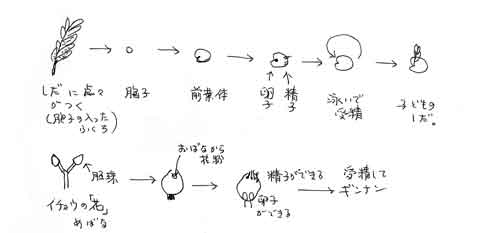 しだに点々
がつく
(胞子の入った
ふくろ)
胞子
前葉体
卵子
精子
泳いで
受精
子どもの
しだ。
胚珠
イチョウの「花」
めばな
おばなから
花粉
精子ができる
卵子
ができる
受精して
ギンナン